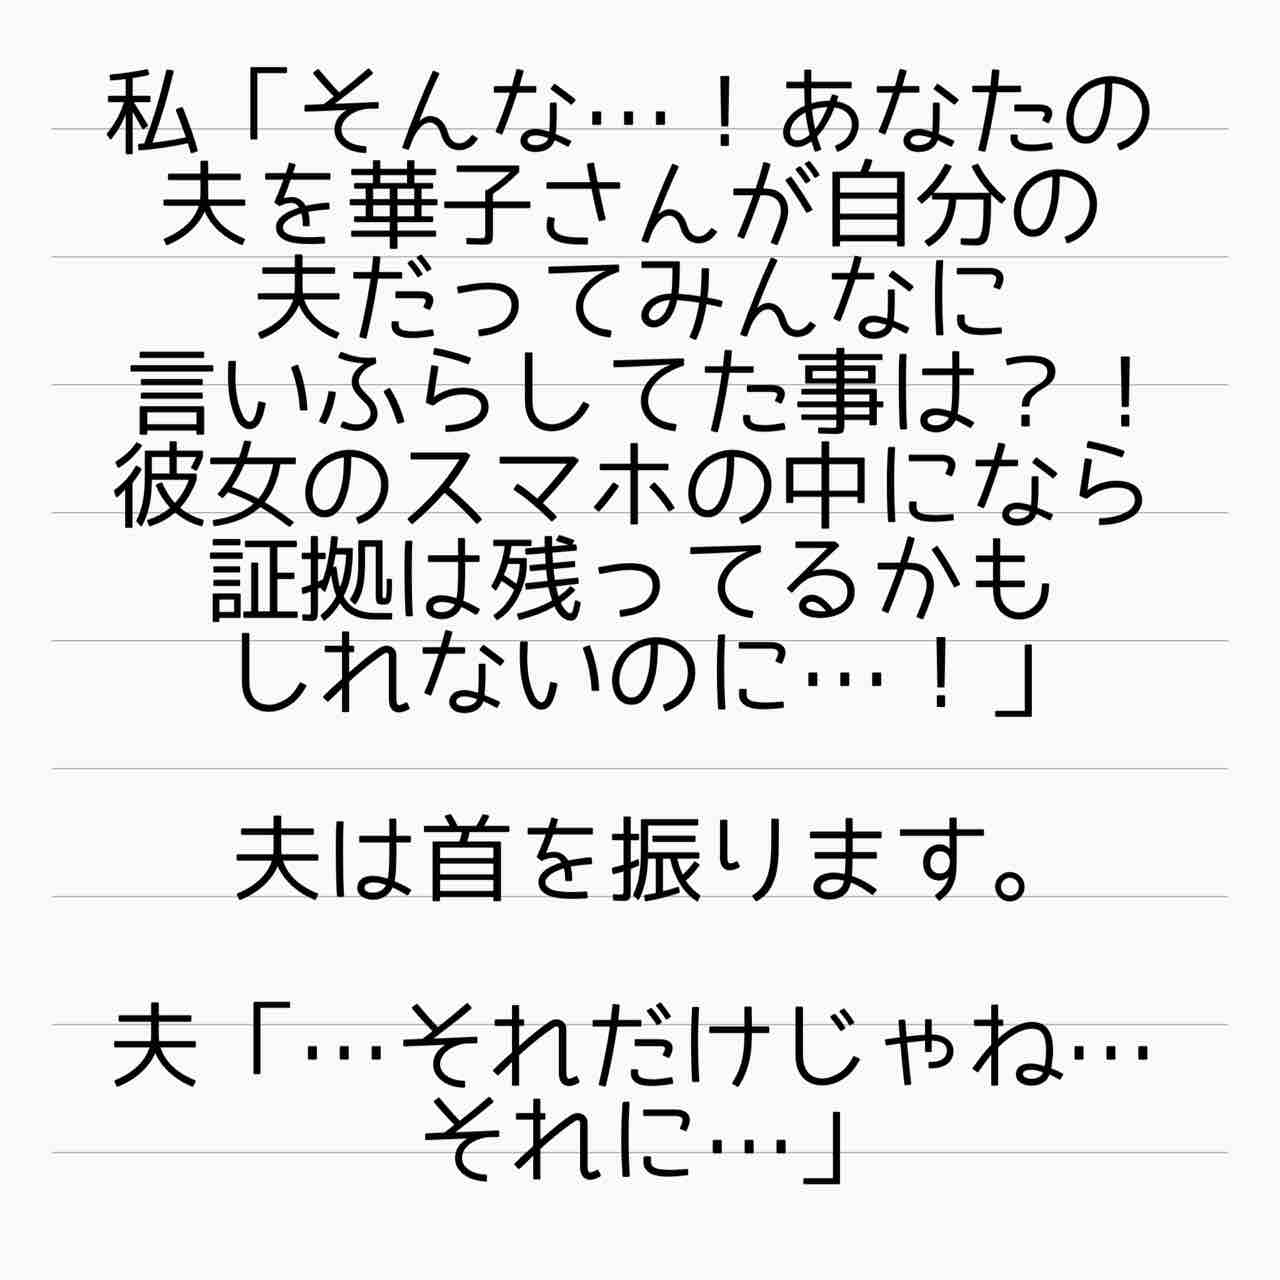 私「そんな…！あなたの
夫を華子さんが自分の
夫だってみんなに
言いふらしてた事は？！
彼女のスマホの中になら
証拠は残ってるかも
しれないのに…！」
夫は首を振ります。
夫「…それだけじゃね…
それに…」